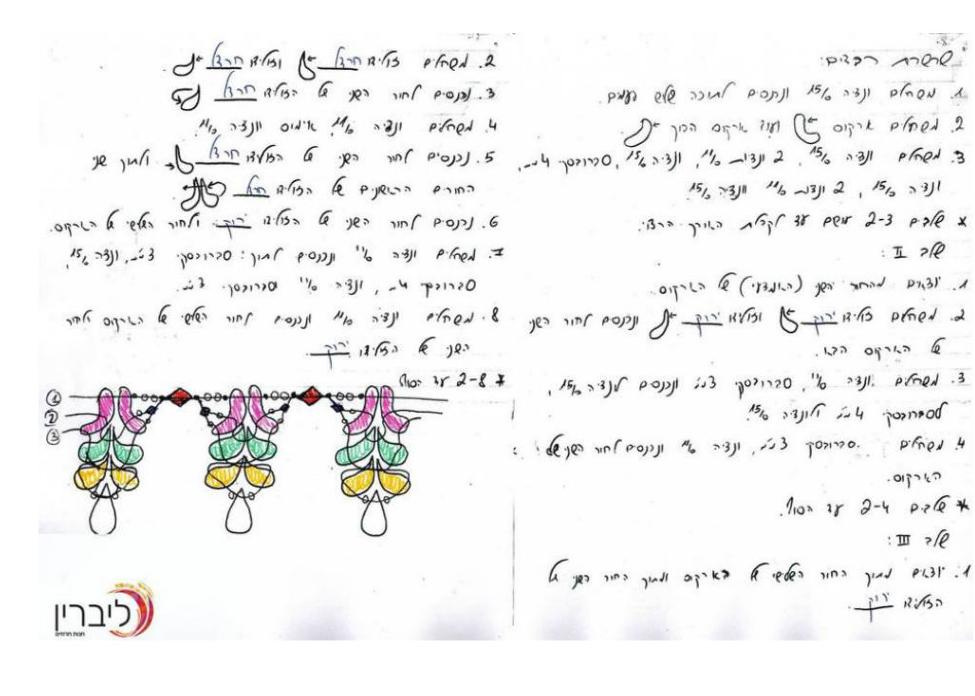 שרשרת רבדים:
1. משחילים ונציה 15/0 ונכנסים לתוכה שלוש פעמים.
2. משחילים ארקוס ועוד ארקוס הפוך.
3. משחילים ונציה 15/0, 2 ונציות 11/0, ונציה 15/0, סברובסקי 4 מ"מ,
ונציה 15/0, 2 ונציות 11/0 וונציה 15/0.
* שלבים 2-3 עושים עד לקבלת האורך הרצוי.
שלב II:
1. יוצאים מהחור השני (האמצעי) של הארקוס.
2. משחילים זולידו ירוק וזולידו ירוק ונכנסים לחור השני
של הארקוס הבא.
3. משחילים ונציה 11/0, סברובסקי 3 מ"מ ונכנסים לונציה 15/0,
לסברובסקי 4 מ"מ ולונציה 15/0.
4. משחילים סברובסקי 3 מ"מ, ונציה 11/0 ונכנסים לחור השני של
הארקוס.
* שלבים 2-4 עד הסוף.
שלב III:
1. יוצאים מתוך החור השלישי של הארקוס ומתוך החור השני של
הזולידו ירוק.
2. משחילים זולידו חרדל וזולידו חרדל
3. נכנסים לחור השני של הזולידו חרדל
4. משחילים ונציה 11/0, וונציה 11/0.
5. נכנסים לחור השני של הזולידו חרדל ולתוך שני
החורים הראשונים של הזולידו חרדל
6. נכנסים לחור השני של הזולידו ירוק ולחור השלישי של הארקוס.
7. משחילים ונציה 11/0 ונכנסים לתוך: סברובסקי 3 מ"מ, ונציה 15/0,
סברובסקי 4 מ"מ, ונציה 11/0 וסברובסקי 3 מ"מ.
8. משחילים ונציה 11/0 ונכנסים לחור השלישי של הארקוס ולחור
השני של הזולידו ירוק.
* 2-8 עד הסוף
1
2
3
ליברין
חנות חרוזים